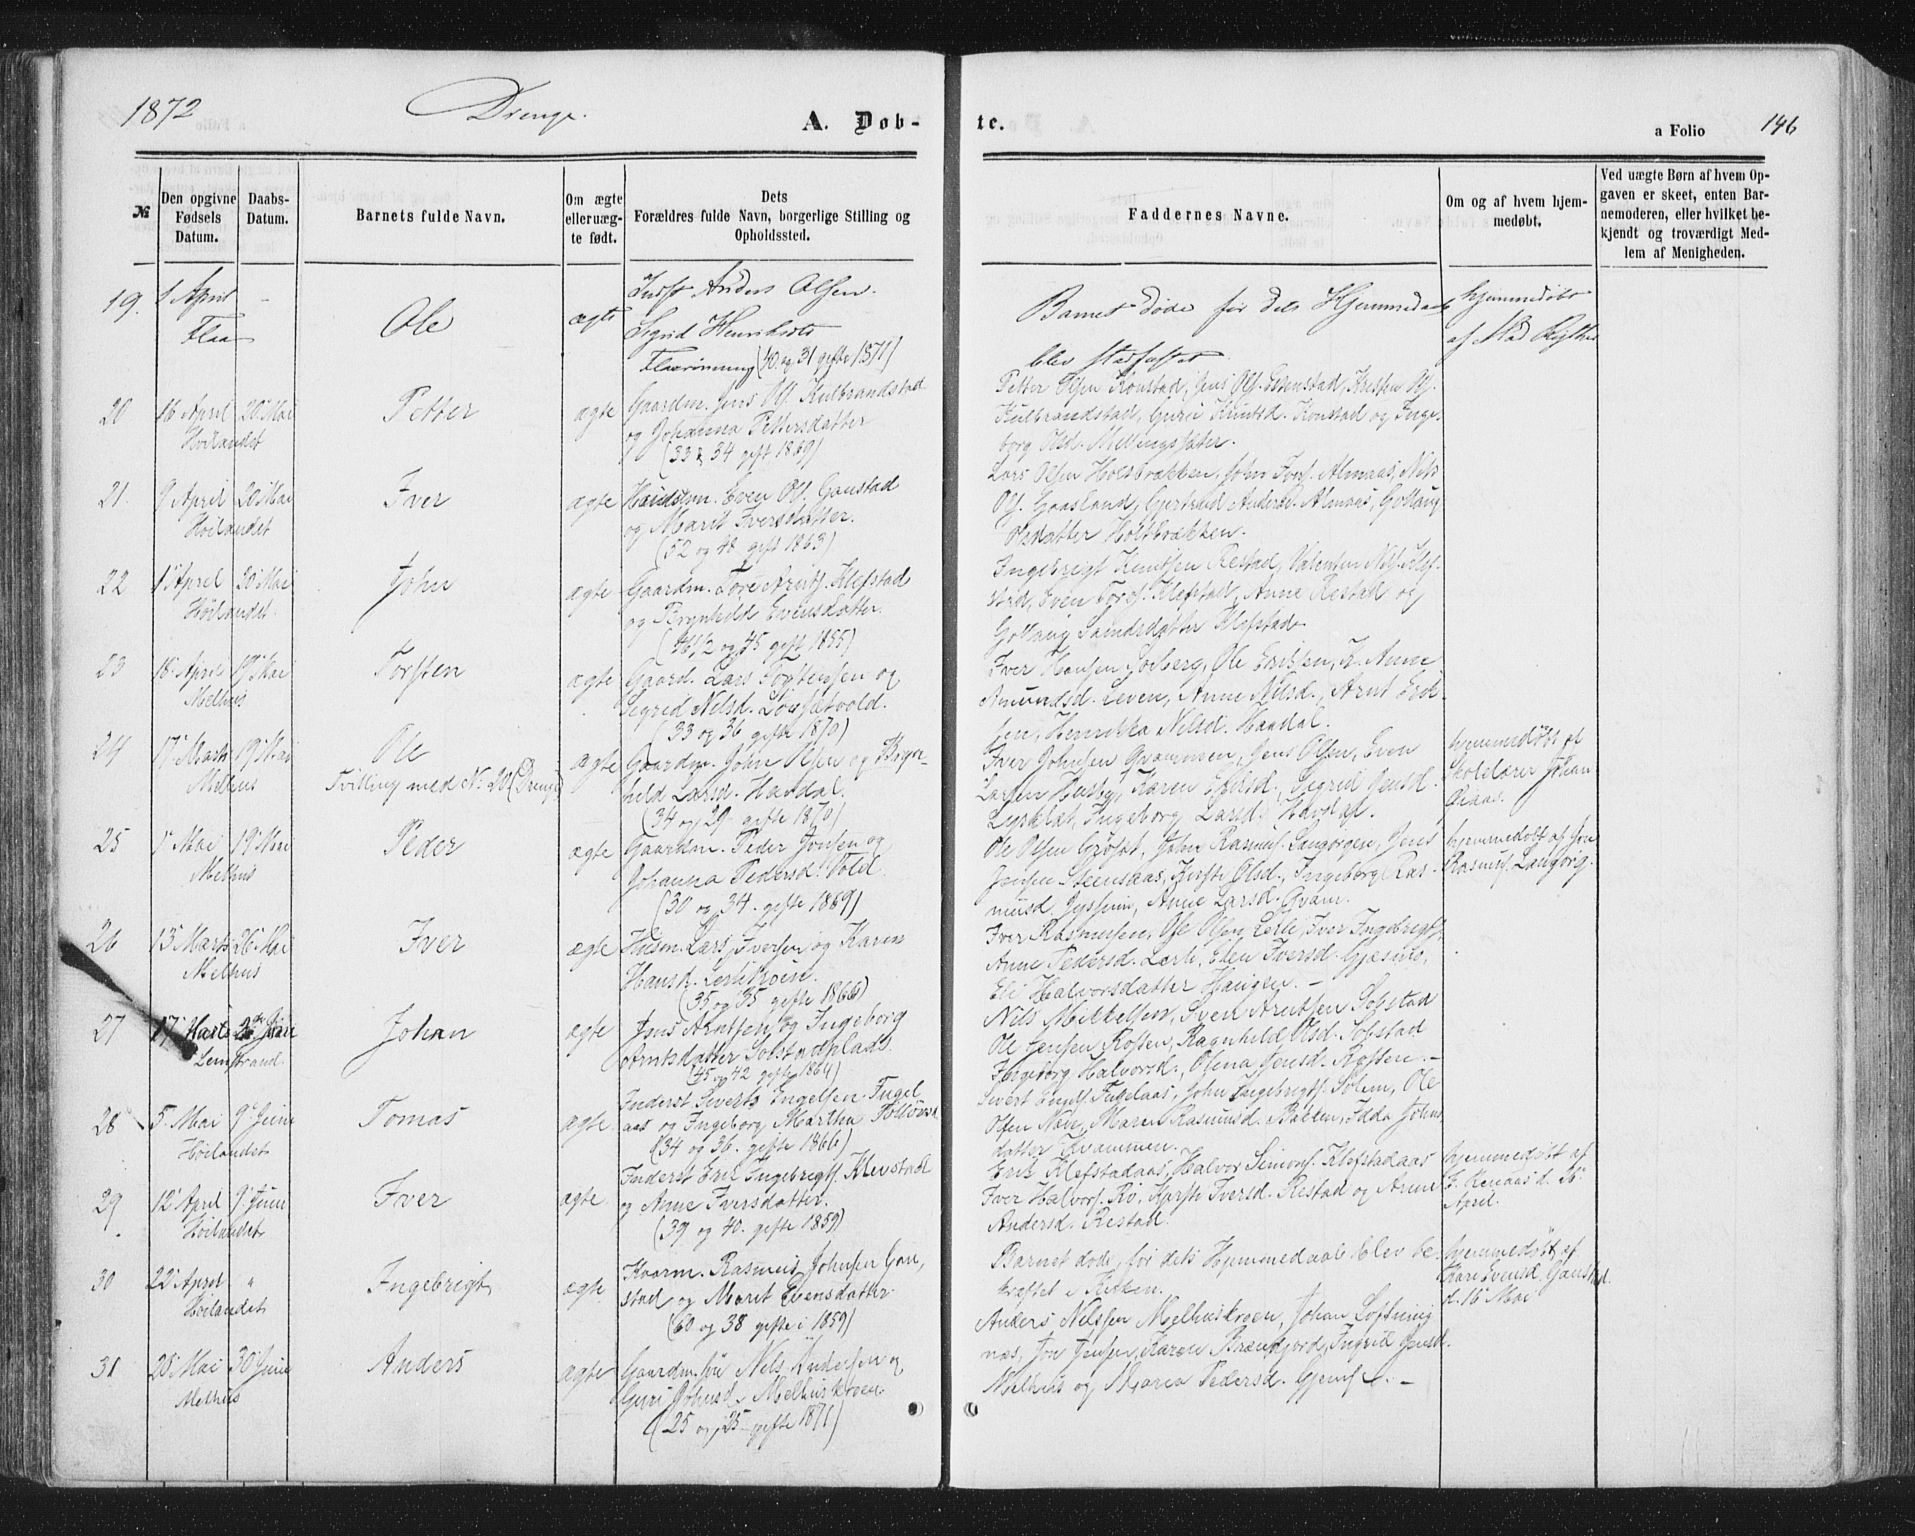 1872 Drenge. A. Døb-
te. a Folio 146
№
Den opgivne Fødsels Datum.
Daabs-Datum.
Barnets fulde Navn.
Om ægte eller uæg-te født.
Dets
Forældres fulde Navn, borgerlige Stilling og
Opholdssted.
Faddernes Navne.
Om og af hvem hjem-
medøbt.
Ved uægte Børn af hvem Op-
gaven er skeet, enten Bar-
nemoderen, eller hvilket be-
kjendt og troværdigt Med-
lem af Menigheden.
19. 1 April - Ole ægte Inds Anders Olsen.
Flaa Sigrid Henriksdt
(40 og 31 gifte 1871)
Barnet døde før dets Hjemmedaab
blev stadfæstet
hjemmedøbt
af
20 16 April 20 Mai Petter ægte Gaardm. Jens Ols. Kulbrandstad
Høilandet og Johanna Pettersdatter
(33 & 34 gift 1869)
Petter Olsen Konstad, Jens Ols. Estenstad, Kristen Ols.
Kulbrandstad, Guru Knutsd. Konstad og Inge-
borg Olsd. Mellingsæter.
21. 9 April 20 Mai Iver ægte Huusm. Even Ols. Gaustad
Høilandet og Marit Iversdatter.
(52 og 40 gift 1863)
Lars Olsen Holtbrækken, John Ions. Almaas, Nils
Ols. Gaasland, Gjertrud Andersd. Almaas, Gollaug
Olsdatter Holtbrækken.
22 1 April 20 Mai John ægte Gaardm. Tore Arnts. Klefstad
Høilandet og Brynhild Evensdatter.
(46 1/2 og 45 gift 1855)
Ingebrigt Knutsen Restad, Valentin Nils. Klef-
stad, Even Tores. Klefstad, Anne Restad og
Gollaug Klefstad
23 18 April 19 Mai Torsten ægte Gaard. Lars Torstensen og
Melhus Sigrid Nilsd. Løvsetvold.
(33 og 36 gifte 1870)
Iver Hansen Solberg, Ole Eriksen, Anne
Amundsd. Leven, Anne Nilsd., Arnt Erik-
sen, Henrikka Nilsd. Havdal.
24 17 Marts 19 Mai Ole ægte Gaardm. John Olsen og Ragn-
Melhus Tvilling med № 20 (Drenge) hild Larsd. Havdal.
(34 og 29 gifte 1870)
Iver Johnsen Qvammen, Jens Olsen, Even
Larsen Husby, Karen Sigrid Jensd.
Lysklæt, Ingeborg Larsd. Havdal.
hjemmedøbt af
Skolelærer Johan
Øiaas.
25 1 Mai 19 Mai Peder ægte Gaardm. Peder Jonsen og
Melhus Johanna Pedersd. Vold.
(30 og 34 gifte 1869)
Ole Olsen Grøset, John Rasmus. Langørgen, Jens
Jensen Steensaas, Kirsti Olsd., Ingeborg Ras-
musd Anne Larsd. Qvam.
hjemmedøbt af Jon
Rasmus. Langørg.
26 13 Marts 26 Mai Iver ægte Husm. Lars Iversen og Karen
Melhus Hansd. Lerlitrøen.
(35 og 35 gifte 1866)
Iver Rasmussen, Ole Olsen Lerli, Iver Ingebrigts.
Anne Pedersd. Lerli, Elen Iversd. Gjæsmo,
Eli Halvorsdatter Haugen. -
27 17 Marts Juni Johan ægte Jens Arntsen og Ingeborg
Leinstrand. Arntsdatter Solstadplads
(45 og 42 gifte 1864)
Nils Mikkelsen, Sven Arntsen Solstad
Ole Jensen Rosten, Ragnhild Olsd. Solstad
Ingeborg Halvorsd., Olena Jensd. Rosten. -
28 5 Mai 9 Juni Tomas ægte Inderst Siverts Ingelsen Fugel
Høilandet aas og Ingeborg Martha
(34 og 36. gifte 1866)
Sivert Fugelaas, John Ingebrigts. Solem, Ole
Olsen Maren Rasmusd. Bakken, Idda Johns
datter Kvammen.
29 12 April 9 Juni Iver ægte Inderst Enl Ingebrigts Klevstad
Høilandet og Anne Iversdatter.
(39 og 40. gifte 1859)
Erik Klefstadaas, Halvor Simons. Klefstadaas
Iver Halvors. Ro, Kjersti Iversd. Restad og Anne
Andersd. Restad.
hjemmedøbt af
d. 16
April.
30 22 April " Ingebrigt ægte Kaarm. Rasmus Johnsen Gau,
Høilandet stad og Marit Evensdatter
(60 og 38 gifte i 1859)
Barnet døde, før dets Hjemmedaab blev be-
kræftet i Kirken.
hjemmedøbt af
Kari Evensd. Gaustad
d. 15 Mai
31 28 Mai 30 Juni Anders ægte Gaardm. Nils Andersen og
Melhus Guri Johnsd. Melhuskroen
(25 og 25 gifte 1871)
Anders Nilssen Melhuskroen, Johan Løftning
næs, Jon Jensen, Karen Ingrid Jensd.
Melhus og Maria Pedersd. Gjemse. -